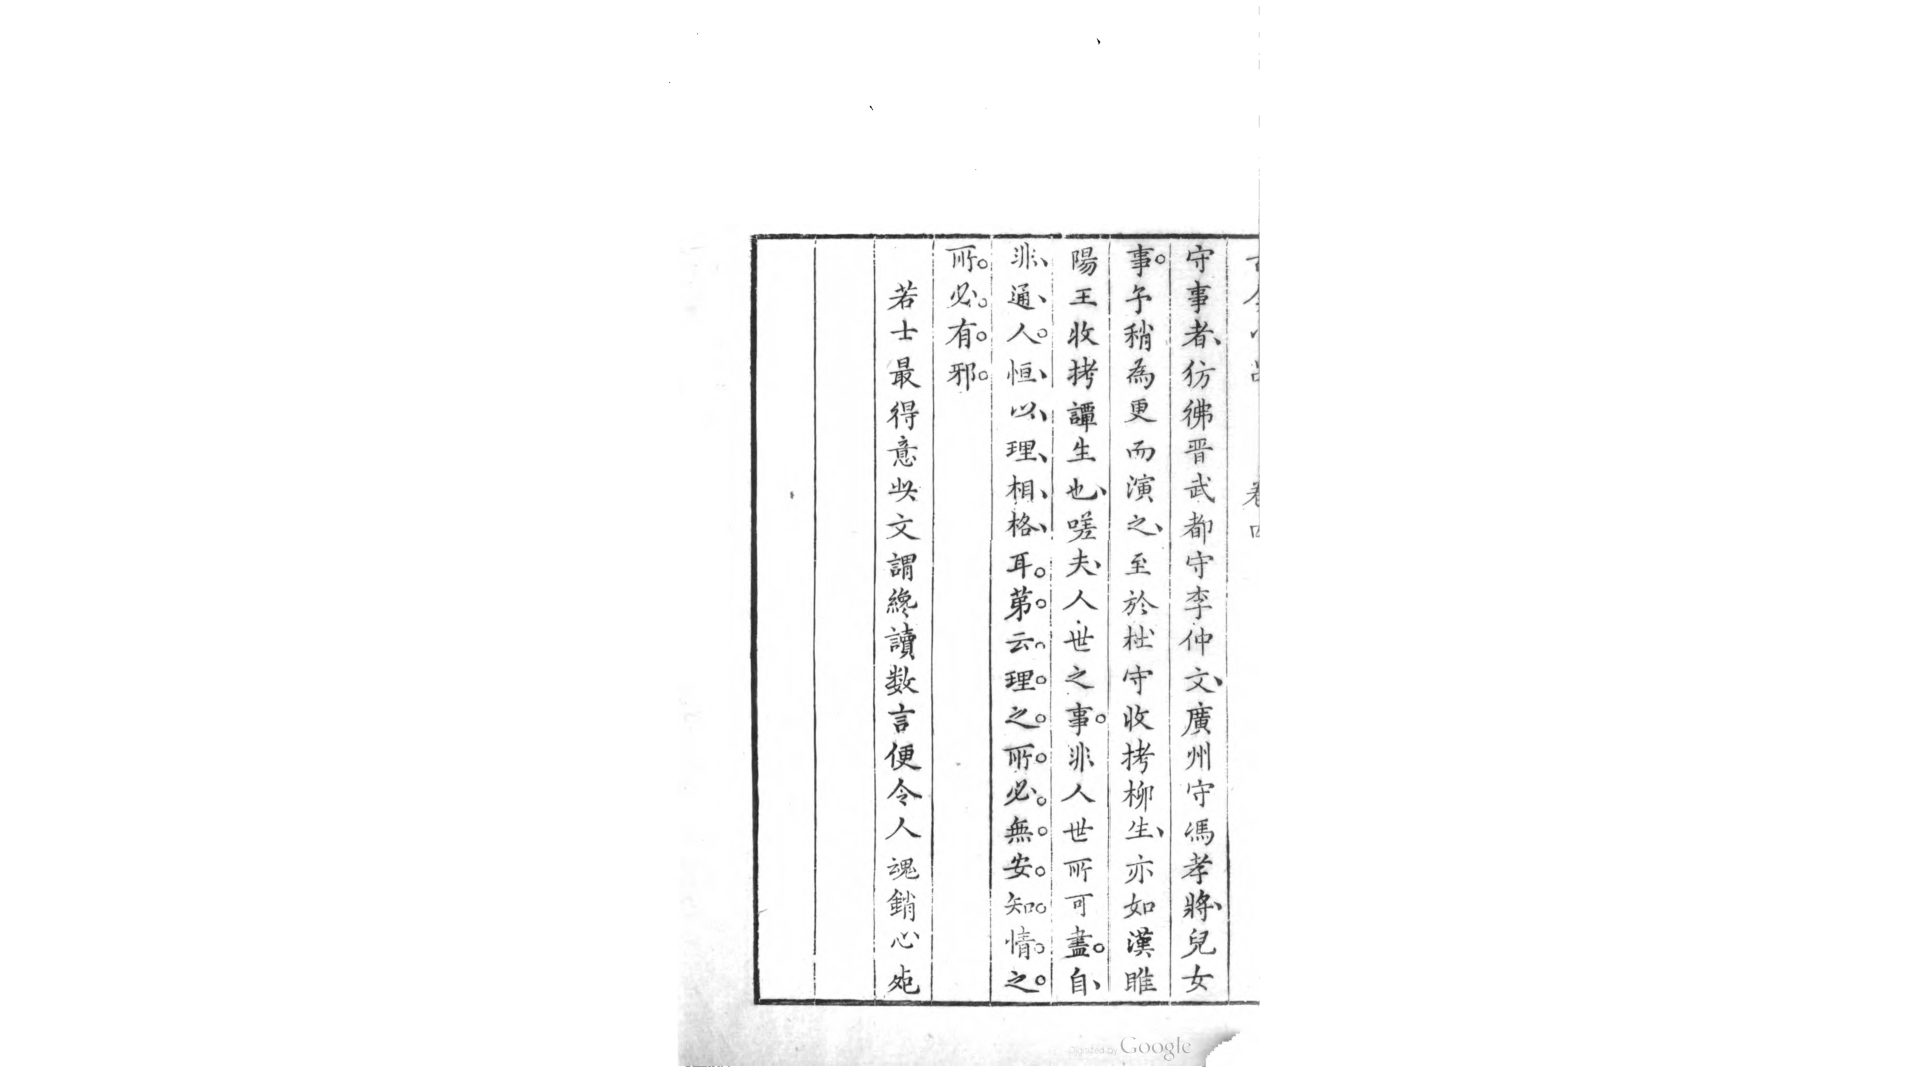 守事者、彷彿晋武都守李仲文、廣州守馮孝將、兒女
事。予稍為更而演之、至於杜守收拷柳生、亦如漢睢
陽王收拷譚生也、嗟夫、人世之事。非人世所可盡。自、
非、通、人。恒、以、理、相、格、耳。第。云。理。之。所。必。無。安。知。情。之。
所。必。有。邪。
若士最得意此文謂纔讀数言便令人魂銷心死
卷四
Digitized by Google